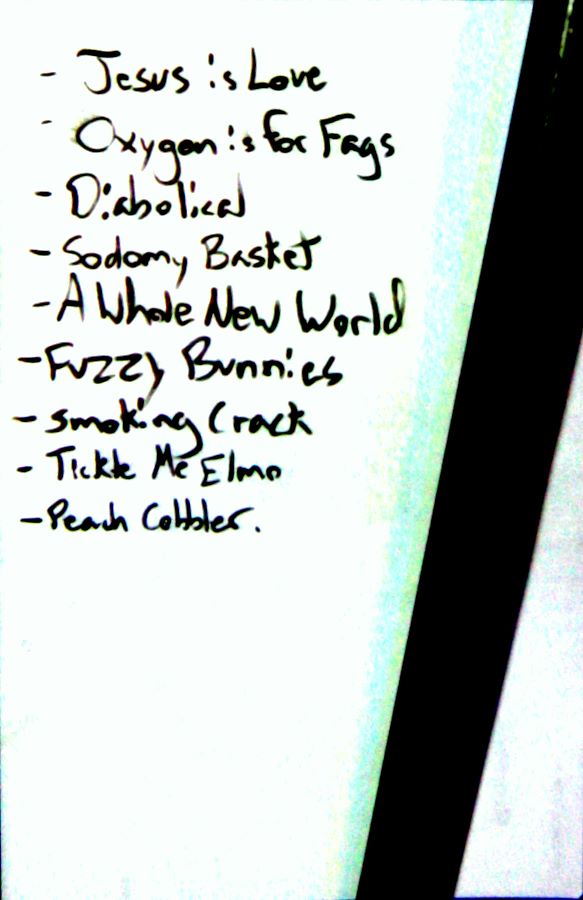 - Jesus is Love
- Oxygen is for Fags
- Diabolical
- Sodomy Basket
- A Whole New World
- Fuzzy Bunnies
- smoking Crack
- Tickle Me Elmo
- Peach Cobbler.